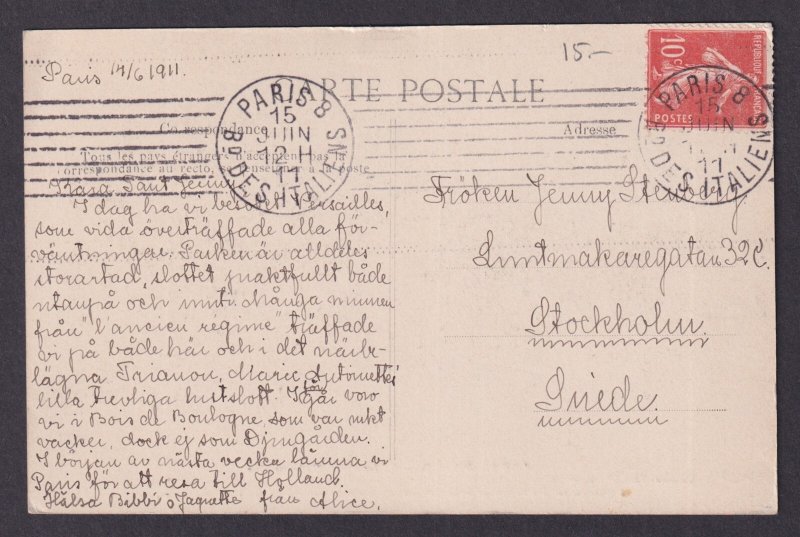 15.-
Paris 14/6 1911.
CARTE POSTALE
10c
REPUBLIQUE FRANÇAISE
POSTES
PARIS 8
15
JUIN
12 H
11
Bd DES ITALIENS
PARIS 8
15
JUIN
11
Bd DES ITALIENS
Correspondance
Adresse
Tous les pays étrangers n'acceptent pas la
correspondance au recto, se renseigner à la poste
Kära Tant Jenny!
I dag ha vi besökt Versailles,
som vida överträffade alla för-
väntningar. Parken är alldeles
storartad, slottet praktfullt både
utanpå och inuti. Många minnen
från "l'ancien régime" träffade
vi på både här och i det närbe-
lägna Trianon, Marie Antoinettes
lilla trevliga lustslott. I går voro
vi i Bois de Boulogne, som var mkt
vacker, dock ej som Djurgården.
I början av nästa vecka lämna vi
Paris för att resa till Holland.
Hälsa Bibbi o Jaquette från Alice.
Fröken Jenny Stenberg
Luntmakaregatan 32C.
Stockholm.
Suède.